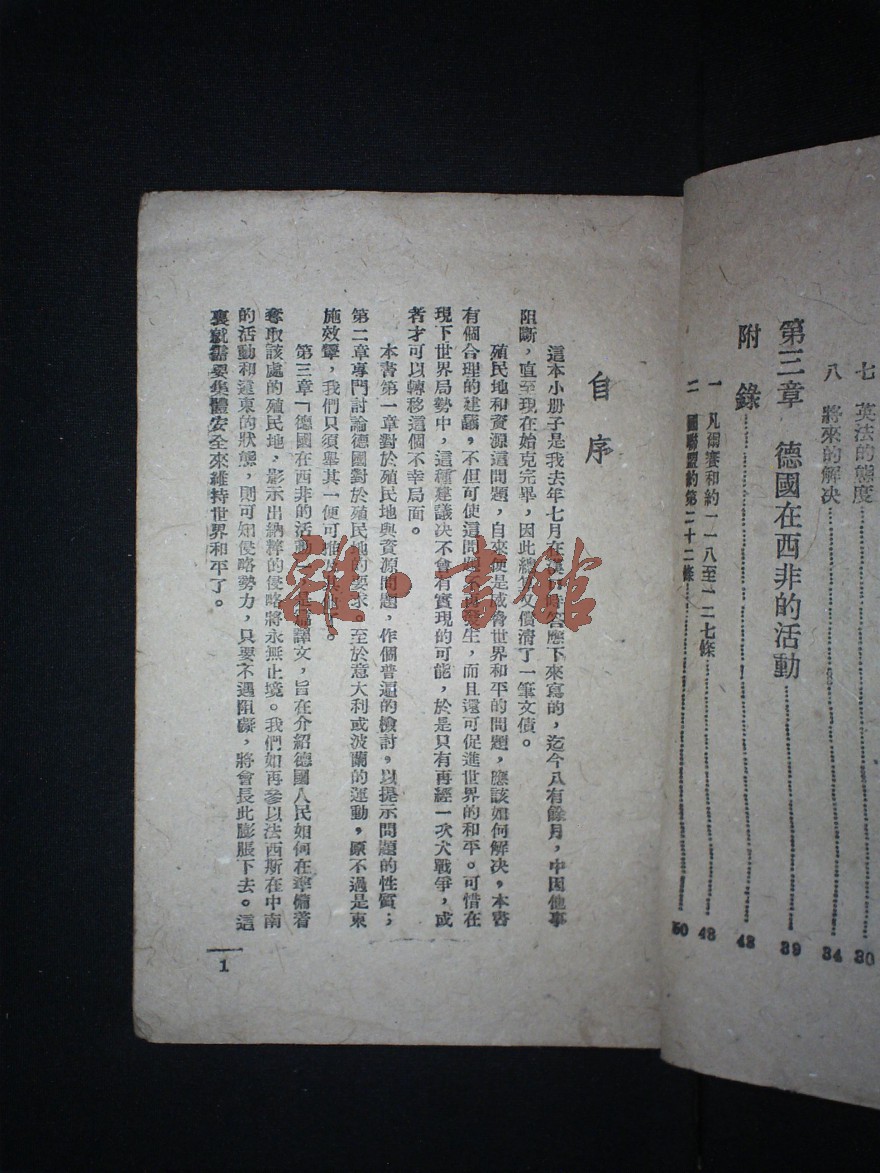 七 英法的態度 30
八 將來的解决 34
第三章 德國在西非的活動 39
附錄 48
一 凡爾賽和約一一八至一二七條 48
二 國聯盟約第二十二條 50
自序
這本小册子是我去年七月在 下來寫的，迄今八有餘月，中因他事
阻斷，直至現在始克完畢，因此總算又償清了一筆文債。
殖民地和資源這問題，自來便是威脅世界和平的問題，應該如何解决，本書
有個合理的建議，不但可使這問題不再發生，而且還可促進世界的和平。可惜在
現下世界局勢中，這種建議决不會有實現的可能，於是只有再經一次大戰爭，或
者才可以轉移這個不幸局面。
本書第一章對於殖民地與資源問題，作個普遍的檢討，以提示問題的性質；
第二章專門討論德國對於殖民地的要求。至於意大利或波蘭的運動，原不過是東
施效顰，我們只須舉其一便可推 其 。
第三章「德國在西非的活動」是篇譯文，旨在介紹德國人民如何在準備着
奪取該處的殖民地，影示出納粹的侵略將永無止境。我們如再參以法西斯在中南
的活動和遠東的狀態，則可知侵略勢力，只要不遇阻礙，將會長此膨脹下去。這
裏就需要集體安全來維持世界和平了。
1
雜·書館